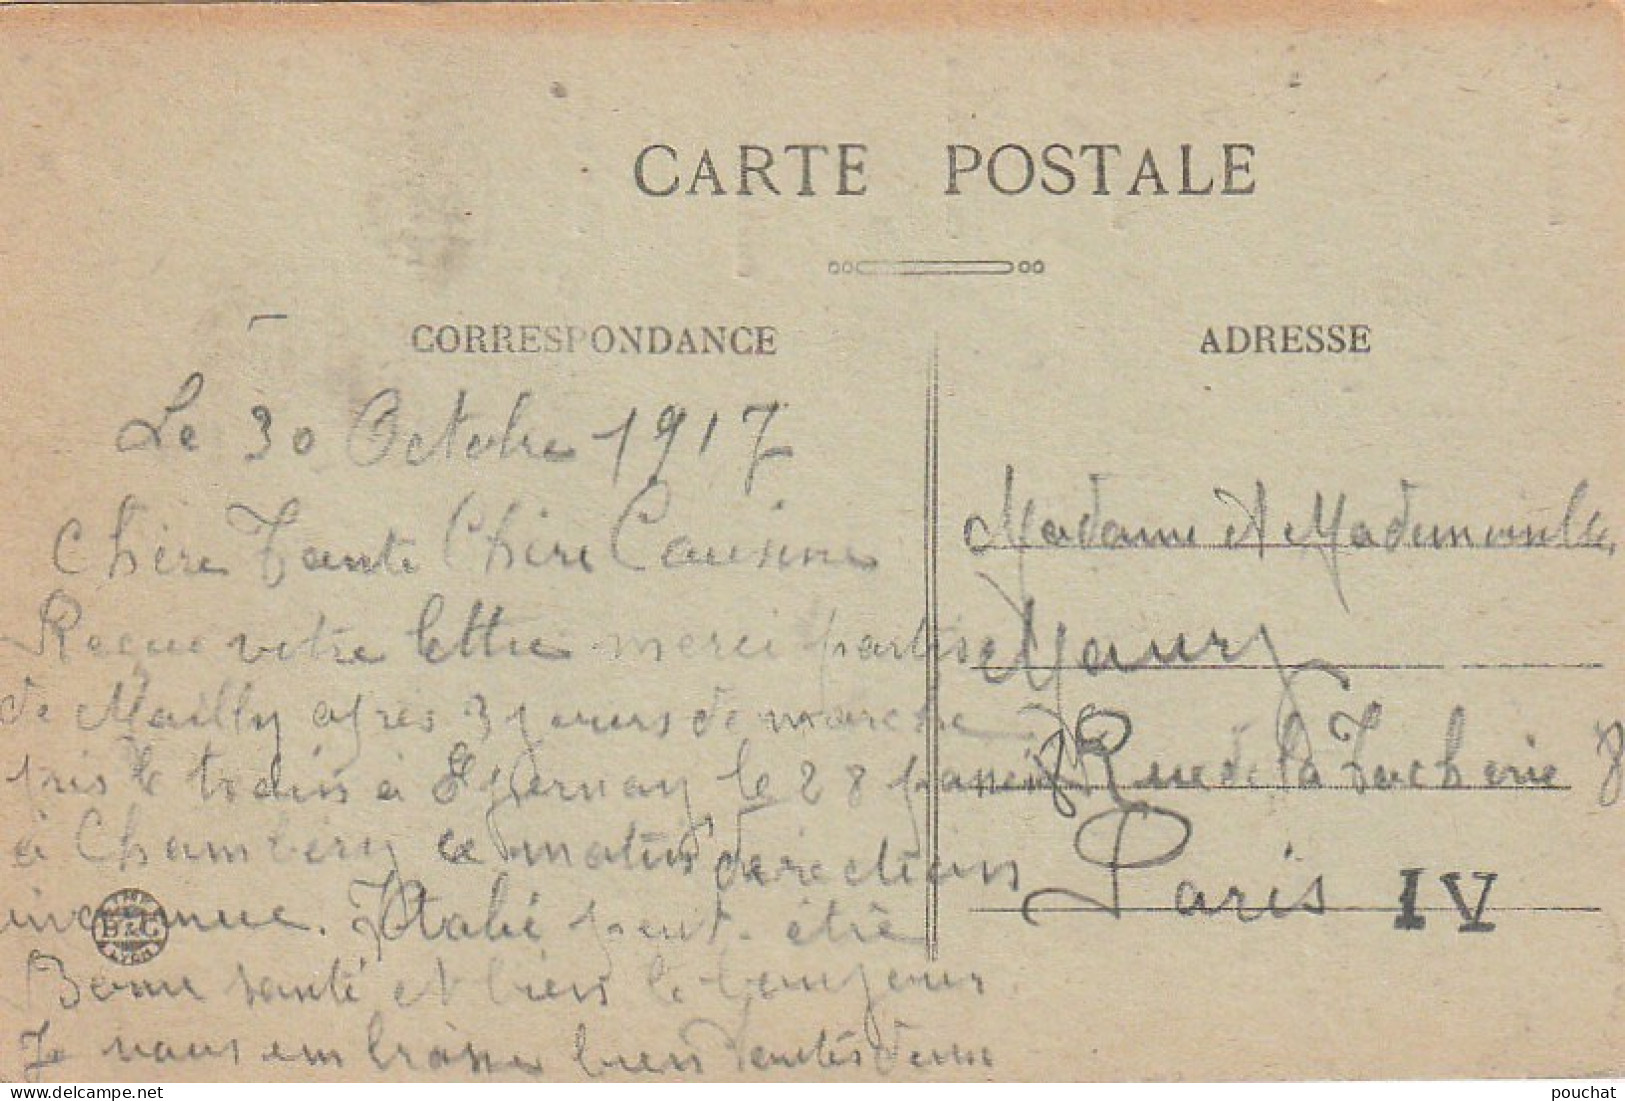 CARTE POSTALE
CORRESPONDANCE
ADRESSE
Le 30 Octobre 1917
Chère Tante Chère Cousine
Reçue votre lettre merci partis
de Mailly après 3 jours de marche
pris le train à Epernay le 28 passer
à Chambery ce matin direction
inconnue. Italie peut-être
Bonne santé et bien le bonjour
Je vous embrasse bien toutes deux
Madame et Mademoiselle
Maury
8 Rue de la Tacherie 8
Paris IV
IMP. B&G LYON
pouchat